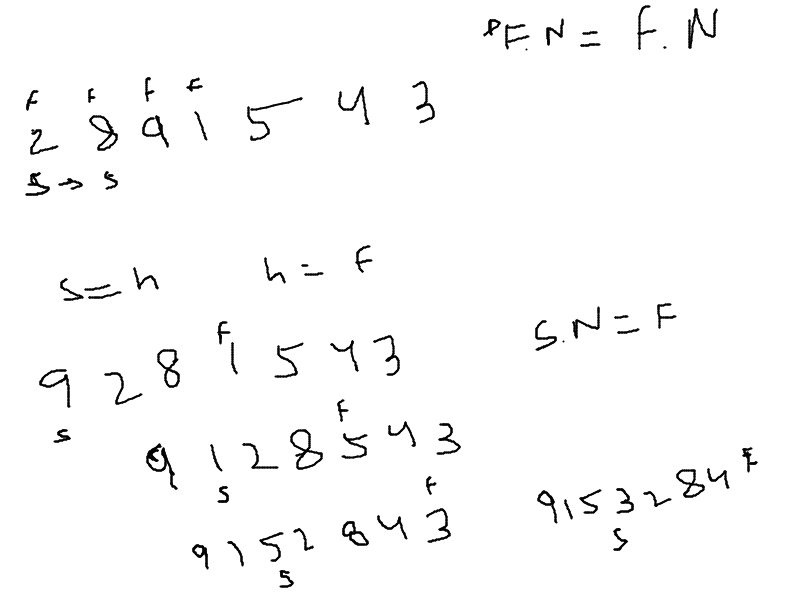 PF.N = F.N
F F F F
2 8 9 1 5 4 3
S → S
S = h h = F
S.N = F
F
9 2 8 1 5 4 3
S
F
9 1 2 8 5 4 3
S
F
9 1 5 2 8 4 3
S
F
9 1 5 3 2 8 4
S